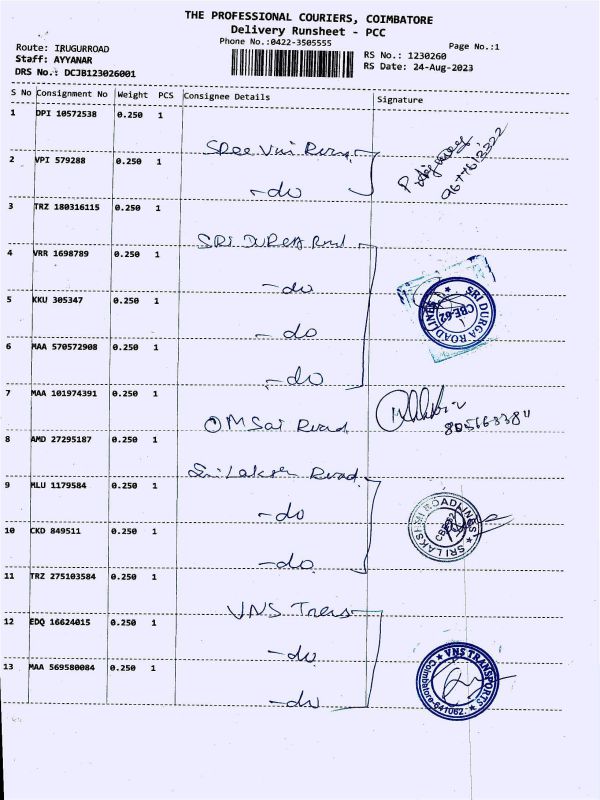 THE PROFESSIONAL COURIERS, COIMBATORE
Delivery Runsheet - PCC
Phone No.:0422-3505555
Page No.:1
Route: IRUGURROAD
Staff: AYYANAR
DRS No.: DCJB123026001
RS No.: 1230260
RS Date: 24-Aug-2023
S No Consignment No Weight PCS Consignee Details Signature
1 DPI 10572538 0.250 1
Sree Vni
2 VPI 579288 0.250 1
-do
9677612322
3 TRZ 180316115 0.250 1
SRI DURGA Road
4 VRR 1698789 0.250 1
-do
5 KKU 305347 0.250 1
-do
SRI DURGA ROADLINES
CBE-62
6 MAA 570572908 0.250 1
-do
7 MAA 101974391 0.250 1
OM Sai Road
8 AMD 27295187 0.250 1
Sri Laksmi Road
9 MLU 1179584 0.250 1
-do
SRI LAKSHMI ROADLINES
10 CKD 849511 0.250 1
-do
11 TRZ 275103584 0.250 1
VNS Trans
12 EDQ 16624015 0.250 1
-do
13 MAA 569580084 0.250 1
-do
VNS TRANSPORTS
Coimbatore-641062.